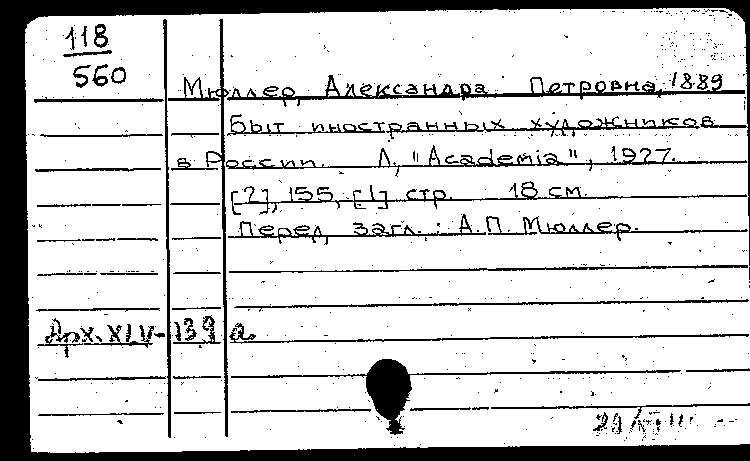 118
560
Мюллер, Александра Петровна, 1889
Быт иностранных художников
в России. Л, "Academia", 1927.
[2], 155, [1] стр. 18 см.
Перед загл.: А.П. Мюллер.
Арх. XLV-139 а.